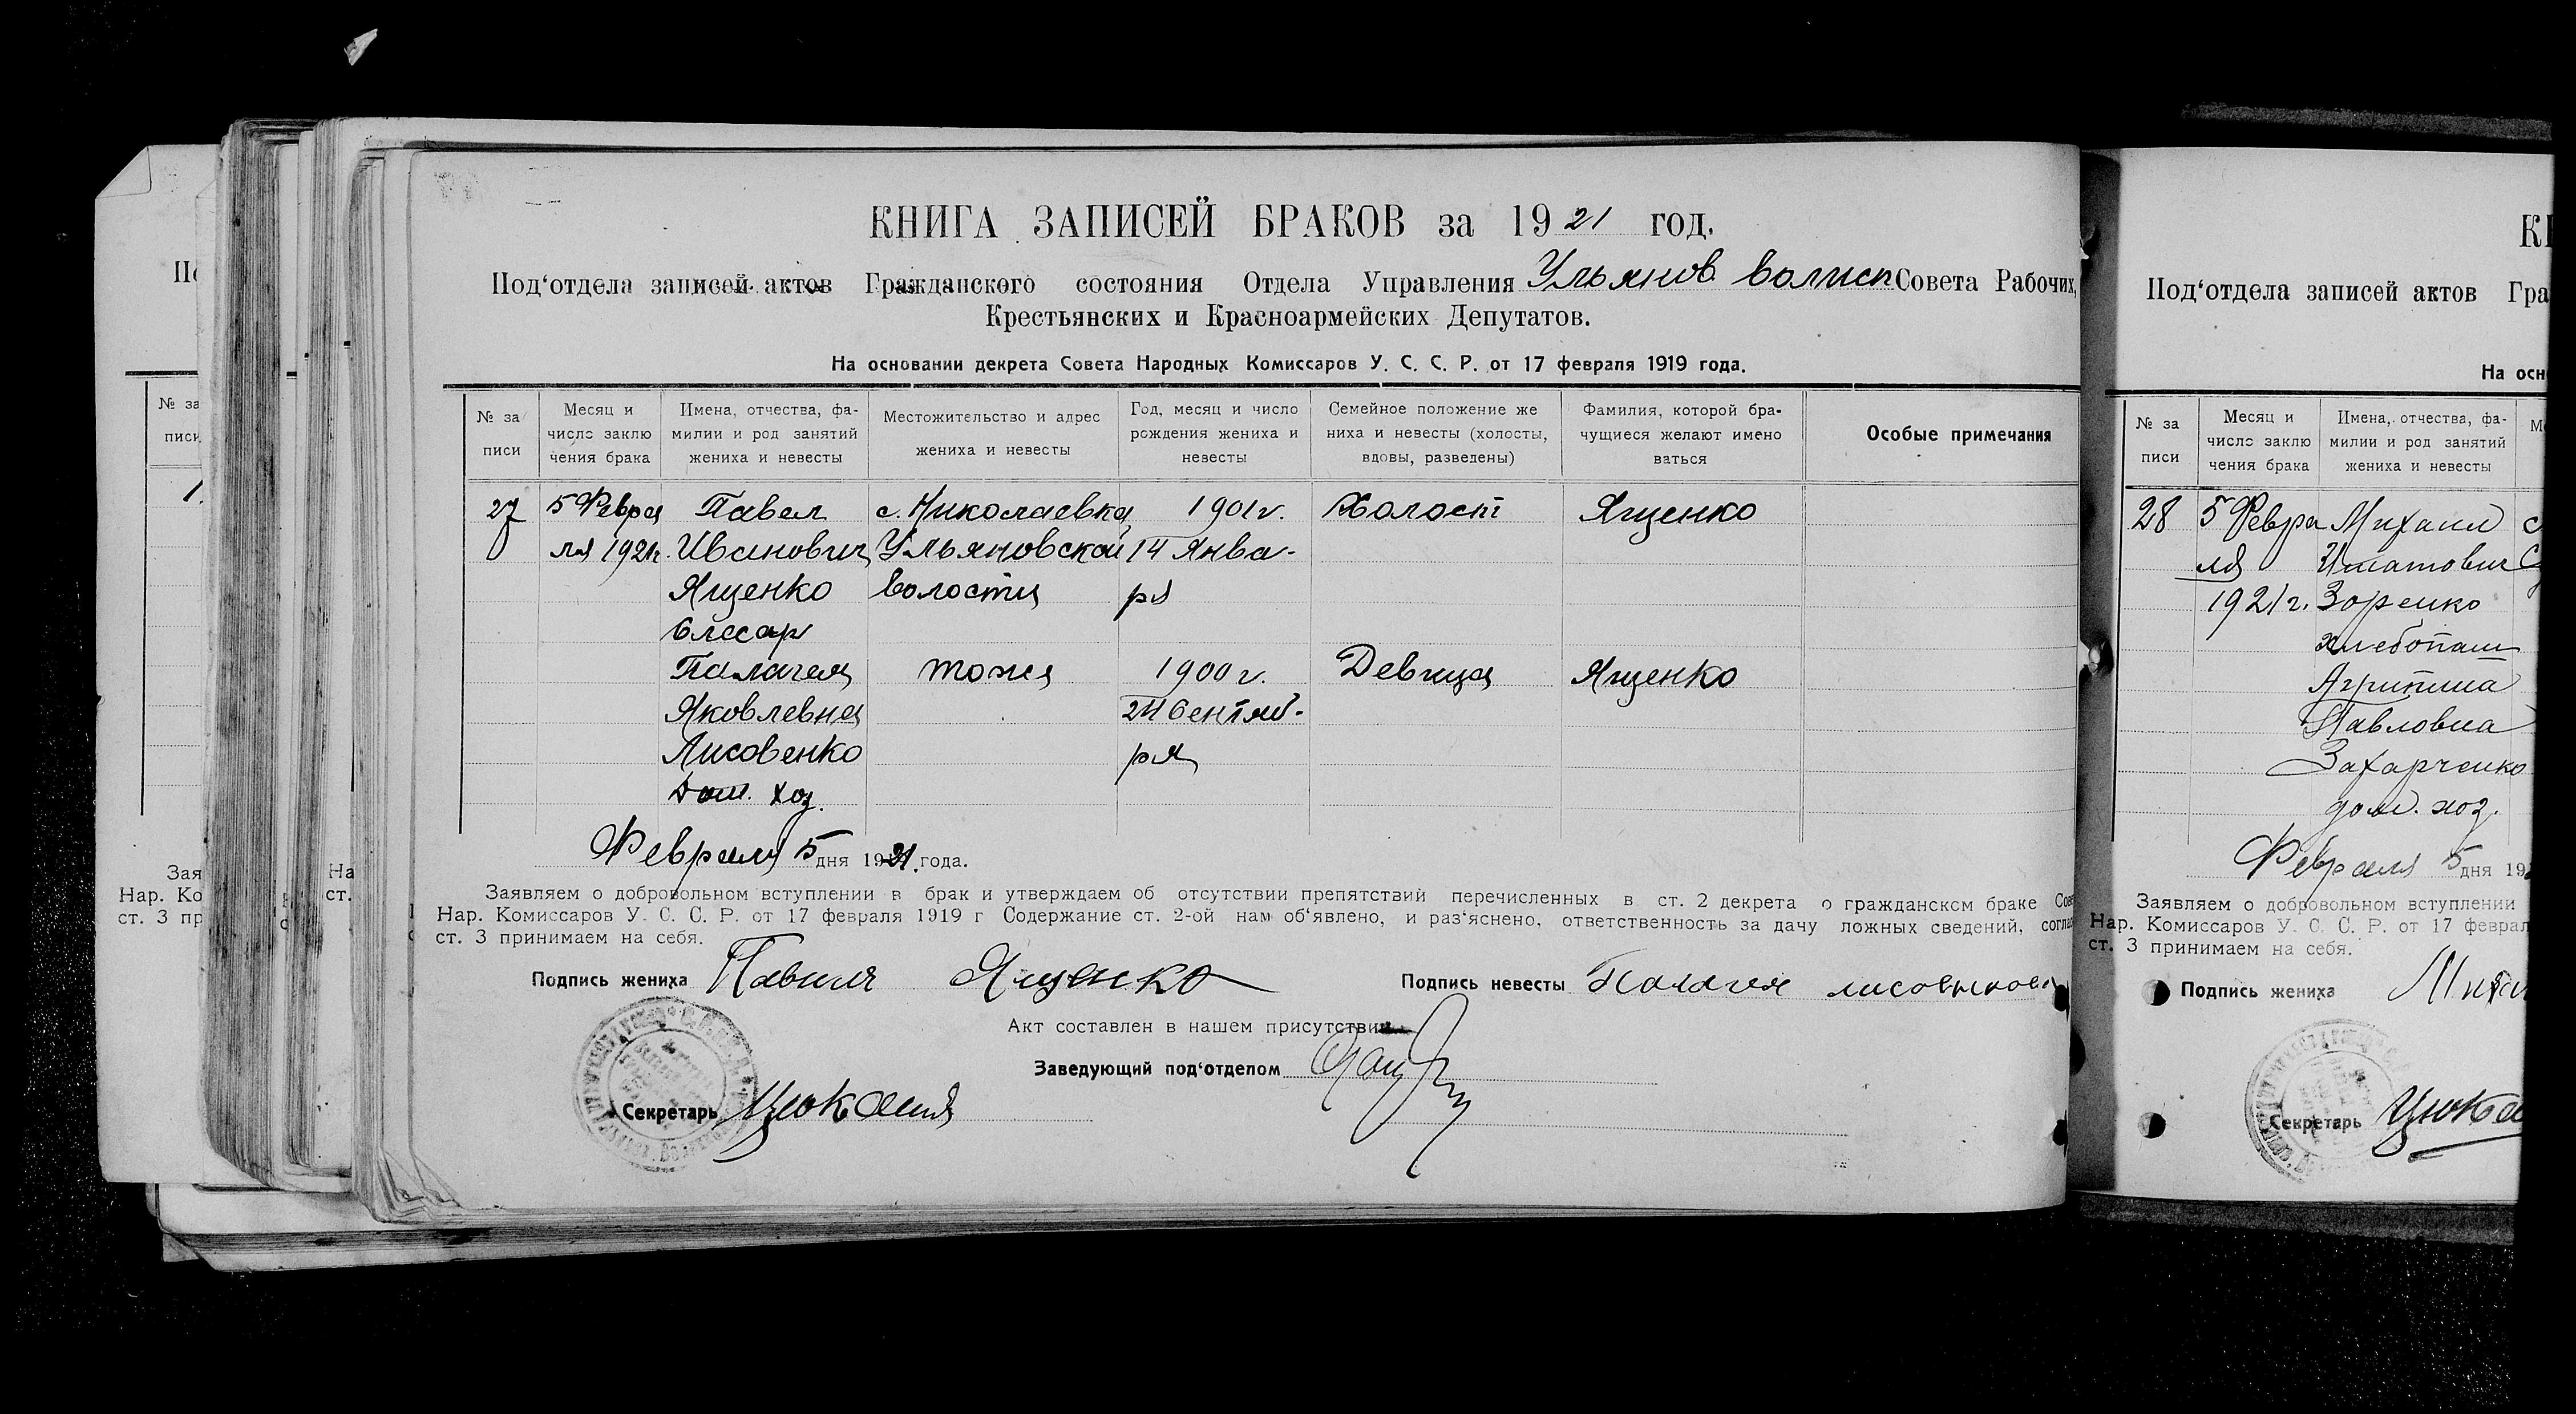 КНИГА ЗАПИСЕЙ БРАКОВ за 1921 год.
Под‘отдела записей актов Гражданского состояния Отдела Управления Ульянов. волисп Совета Рабочих,
Крестьянских и Красноармейских Депутатов.
На основании декрета Совета Народных Комиссаров У. С. С. Р. от 17 февраля 1919 года.
№ за
писи
Месяц и
число заклю
чения брака
Имена, отчества, фа-
милии и род занятий
жениха и невесты
Местожительство и адрес
жениха и невесты
Год, месяц и число
рождения жениха и
невесты
Семейное положение же
ниха и невесты (холосты,
вдовы, разведены)
Фамилия, которой бра-
чущиеся желают имено
ваться
Особые примечания
27 5 Февра Павел с. Николаевка 1901 г. Холост Ященко
ля 1921г. Иванович Ульяновской 14 Янва-
Ященко волости ря
Слесар
Палагея тоже 1900 г. Девица Ященко
Яковлевна 24 Сентяб-
Лисовенко ря
Дом. хоз.
Февраля 5 дня 1921. года.
Заявляем о добровольном вступлении в брак и утверждаем об отсутствии препятствий перечисленных в ст. 2 декрета о гражданском браке Сове
Нар. Комиссаров У. С. С. Р. от 17 февраля 1919 г Содержание ст. 2-ой нам об‘явлено, и раз‘яснено, ответственность за дачу ложных сведений, соглас
ст. 3 принимаем на себя.
Подпись жениха Ященко Подпись невесты Палагея
Акт составлен в нашем присутствии
Заведующий под‘отделом
Секретарь
КН
Под‘отдела записей актов Гра
На осн
№ за
писи
Месяц и
число заклю
чения брака
Имена, отчества, фа-
милии и род занятий
жениха и невесты
28 5 Февра Михаил с
ля
1921 г. Зоренко
хлебопаш
Агрипина
Павловна
Захарченко
дом. хоз.
Февраля 5 дня 19
Заявляем о добровольном вступлении
Нар. Комиссаров У. С. С. Р. от 17 феврал
ст. 3 принимаем на себя.
Подпись жениха
Секретарь
№ за
писи
Зая
Нар. Ко
ст. 3 пр
На
ст.